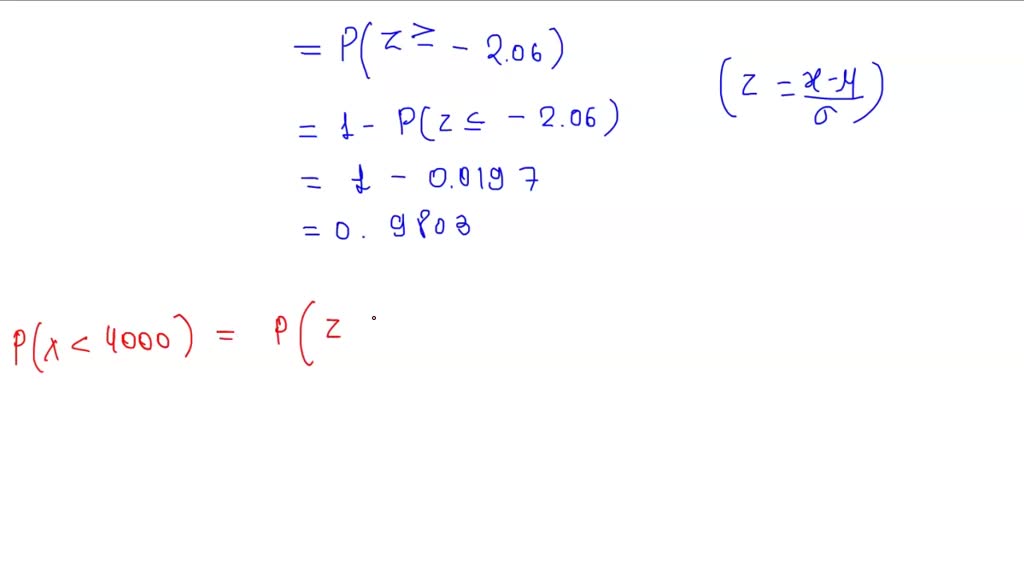 = P(z ≥ - 2.06)
(z = x-μ/σ)
= 1 - P(z ≤ - 2.06)
= 1 - 0.0197
= 0.9803
P(x < 4000) = P(z